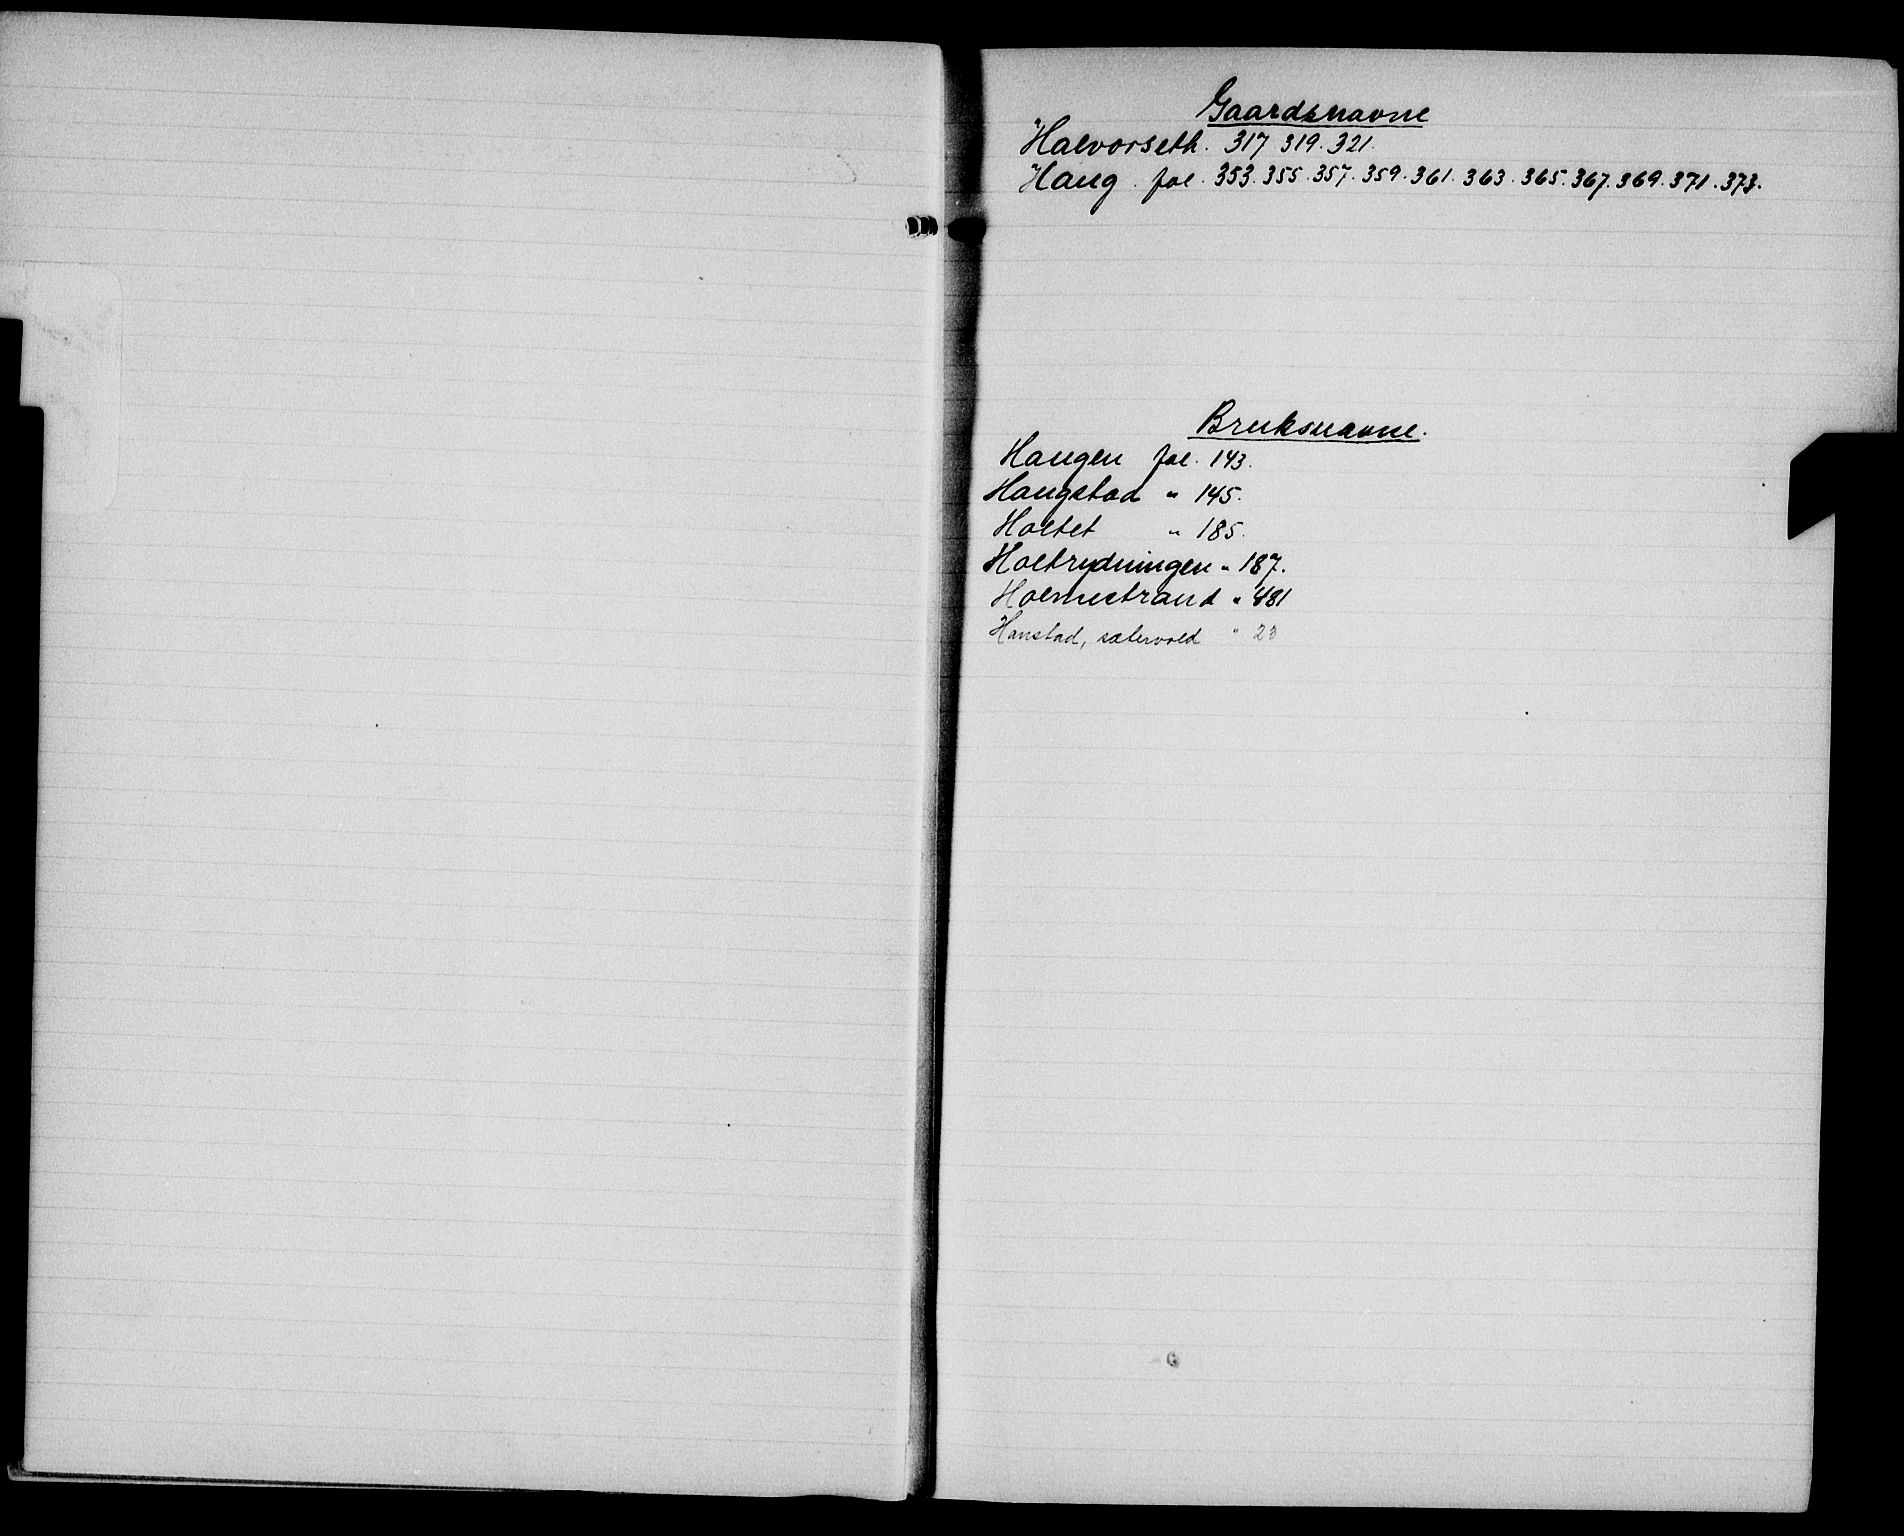 Gaardsnavne
Halvorseth. 317 319. 321.
Haug. fol. 353. 355. 357. 359. 361. 363. 365. 367. 369. 371. 373.
Bruksnavne.
Haugen fol. 143.
Haugstad " 145.
Holtet " 185.
Holtrydningen " 187.
Holmestrand " 481
Hanstad, sætervold " 23